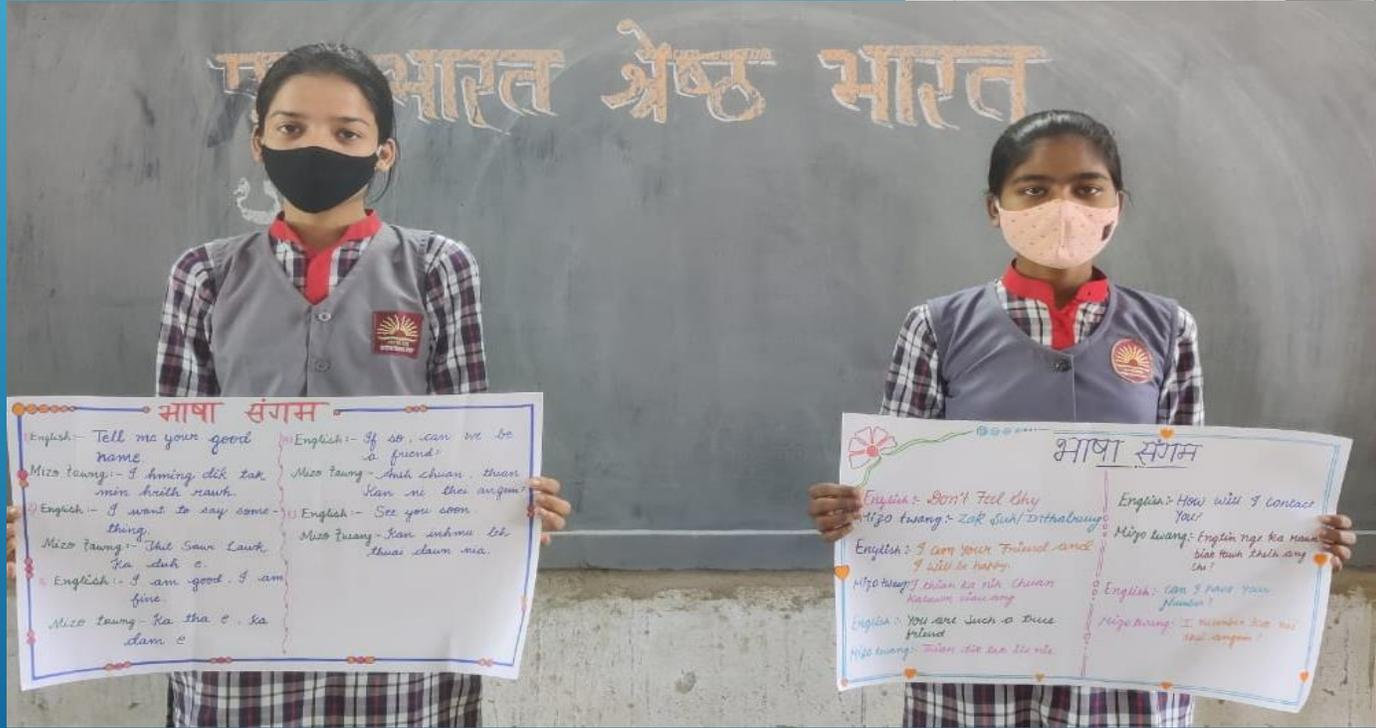 भारत श्रेष्ठ भारत
भाषा संगम
English:- Tell me your good
name.
Mizo tawng:- I hming dik tak
min hrith rawh.
English:- I want to say some-
thing.
Mizo Tawng:- Thil Sawi Lawk
Ka duh e.
English:- I am good. I am
fine.
Mizo tawng- Ka tha e. ka
dam e
English:- If so, can we be
a friend?
Mizo tawng- chuan, thian
Kan ni thei angem?
English:- See you soon.
Mizo Twang:- Kan inhmu leh
thuai dawn nia.
भाषा संगम
English:- Don't Feel Shy
Mizo twang:- Zak Suh/
English:- I am Your Friend and
I will be happy.
Mizo twang:- I thian ka nih Chuan
ang
English:- You are Such a true
friend
Mizo twang:- Thian dik tak
English:- How will I contact
You?
Mizo twang:- Engtin nge ka
biak theih ang
che?
English:- Can I have Your
Number?
Mizo twang:- I number ka
thei angem?